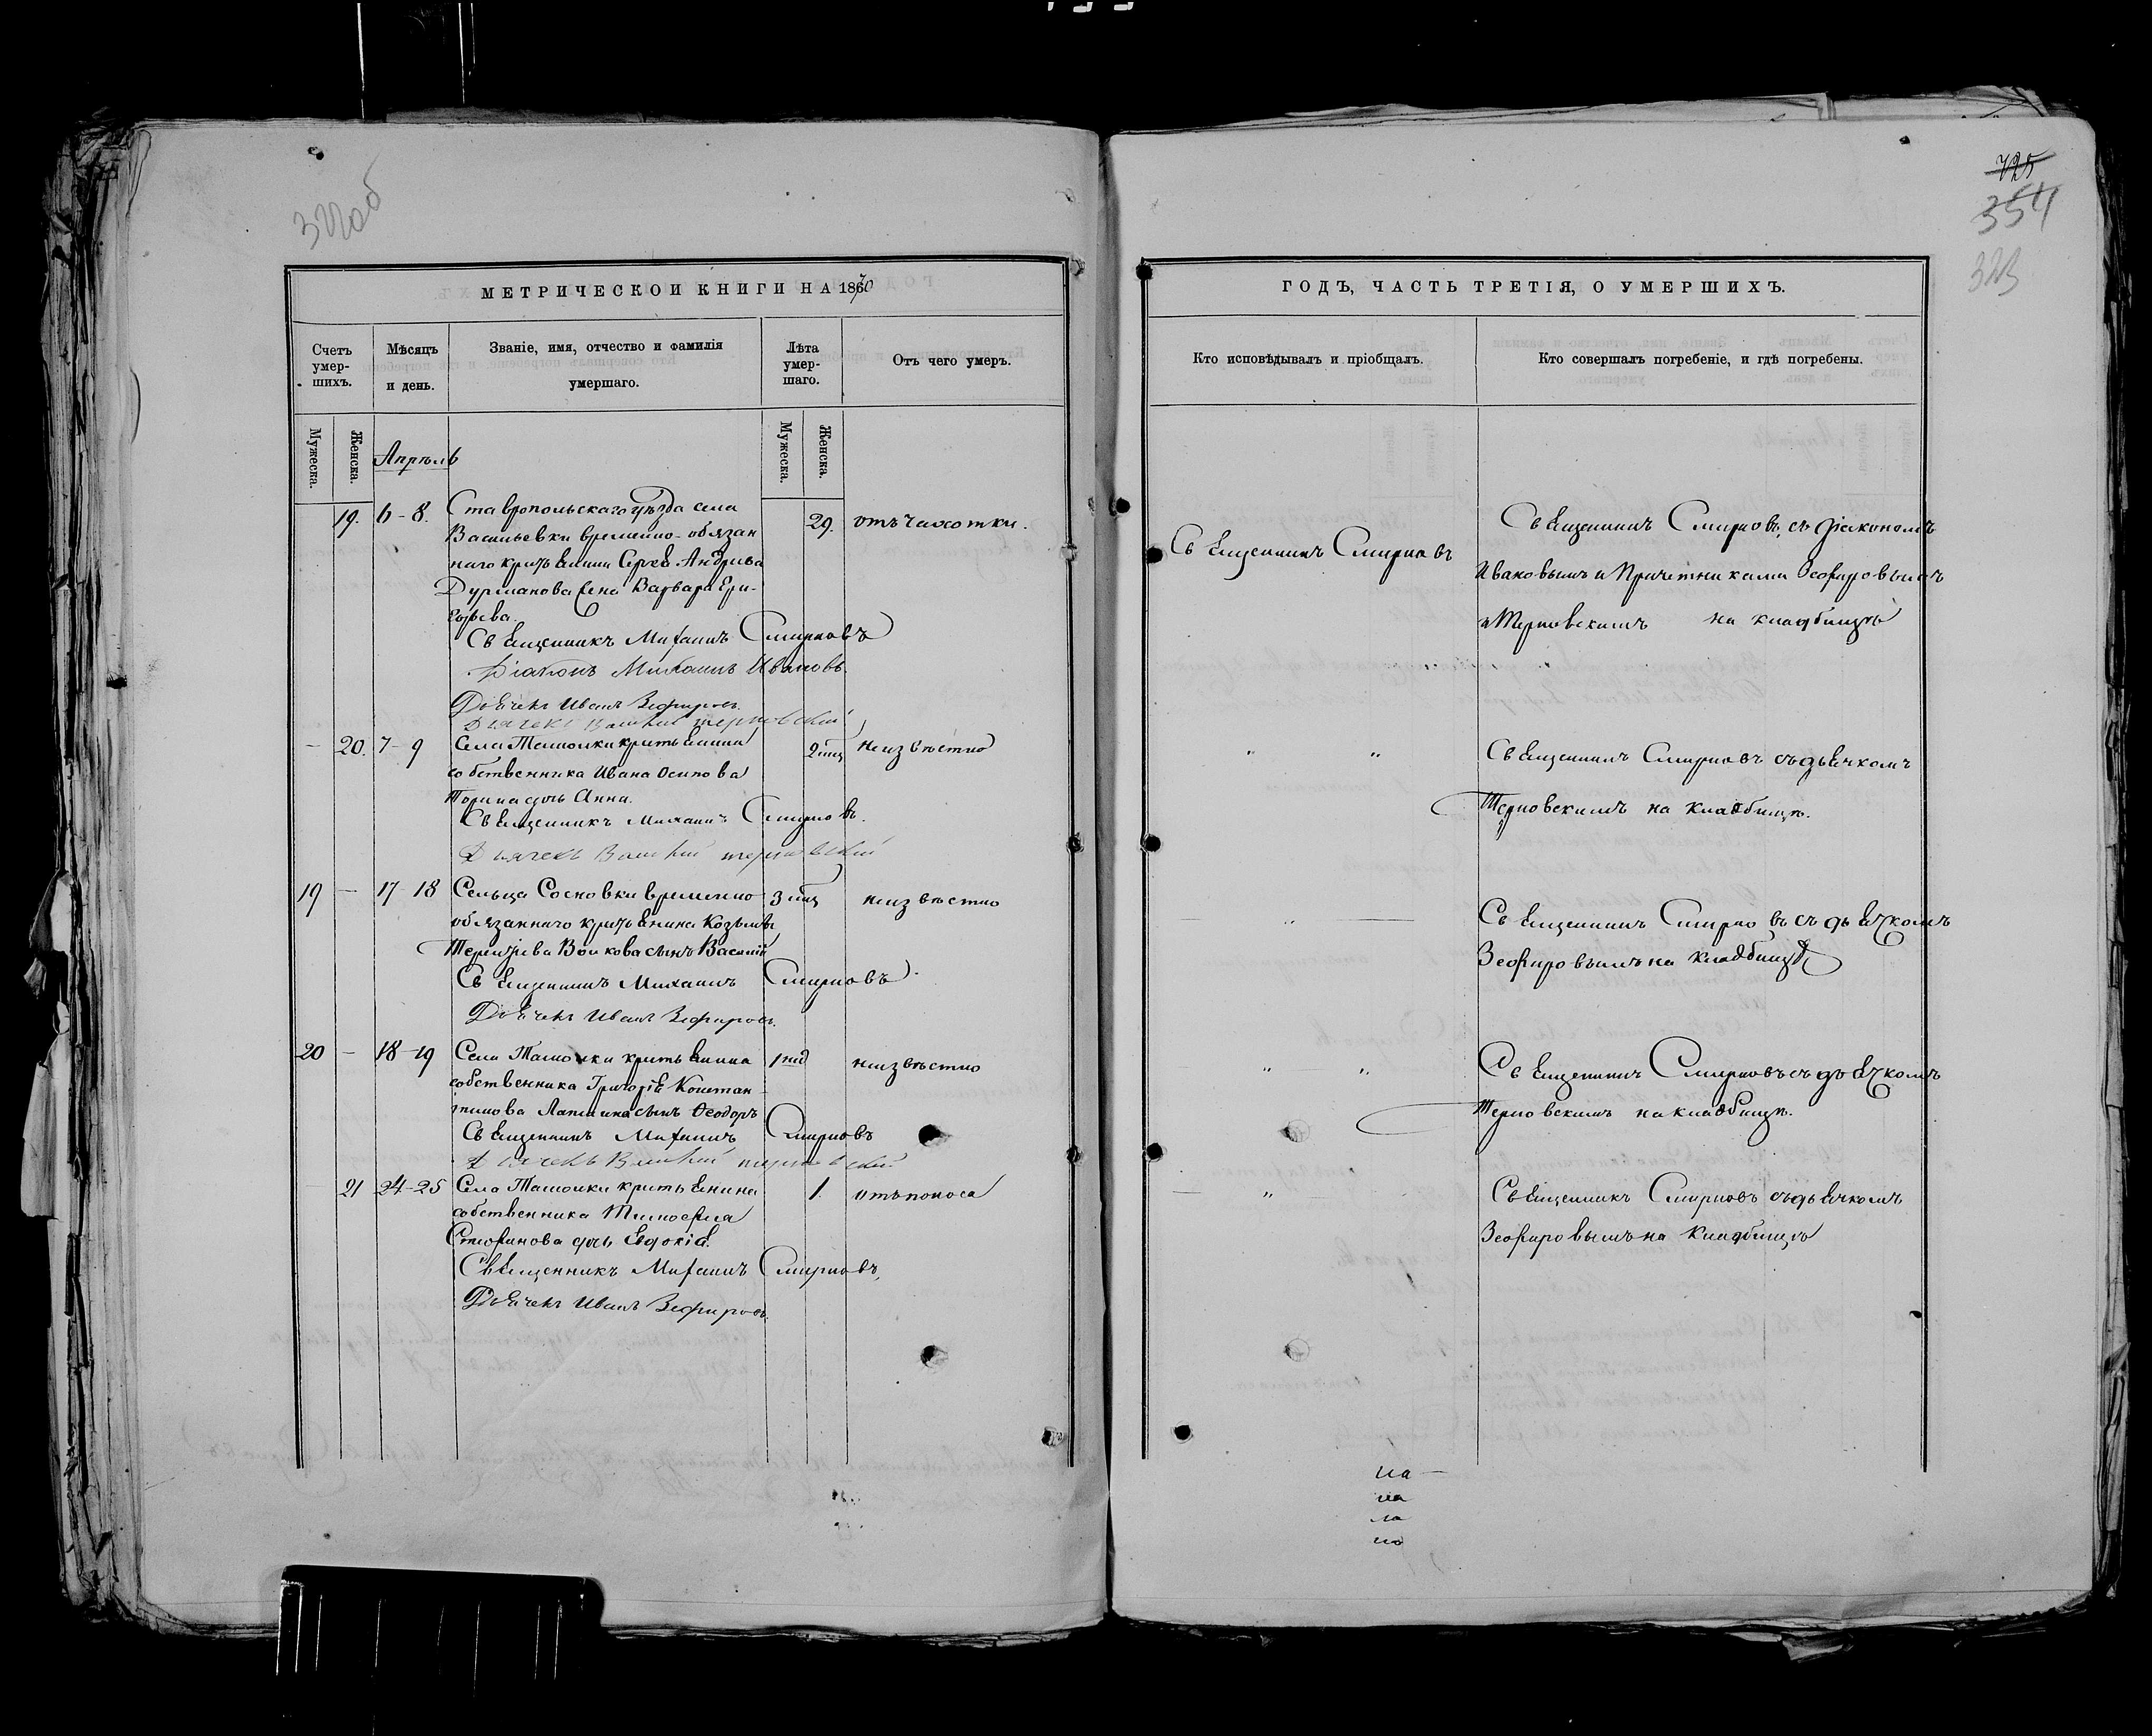 322об
МЕТРИЧЕСКОЙ КНИГИ НА 1870
Счетъ умершихъ.
Мѣсяцъ и день.
Званіе, имя, отчество и фамилія умершаго.
Лѣта умершаго.
Отъ чего умеръ.
Мужеска. Женска.
Мужеска. Женска.
Апрѣль
19. 6-8. Ставропольскаго уѣзда села 29. отъ чахотки.
Васильевки временно-обязан
наго крестьянина Сергѣя Андреева
Дурманова жена Варвара Гри-
горьева.
Священникъ Михаилъ Смирновъ
Діаконъ Михаилъ Ивановъ.
Дьячекъ Иванъ Зефировъ.
Дьячекъ Василий Терновский
- 20. 7-9 Села Ташолки крестьянина 2 мѣц неизвѣстно
собственника Ивана Осипова
дочь Анна.
Священникъ Михаилъ Смирновъ.
Дьячекъ Василий Терновский
19 - 17-18 Сельца Сосновки временно 3 мѣц неизвѣстно
обязаннаго крестьянина Козьмы
Терентьева Волкова сынъ Василій
Священникъ Михаилъ Смирновъ.
Дьячекъ Иванъ Зефировъ.
20 - 18-19 Села Ташолки крестьянина 1 нед неизвѣстно
собственника Григорія Констан
тинова сынъ Ѳеодоръ
Священникъ Михаилъ Смирновъ
Дьячекъ Василий Терновский
21 24-25 Села Ташолки крестьянина 1. отъ поноса
собственника Тимофея
дочь Евдокія.
Священникъ Михаилъ Смирновъ.
Дьячекъ Иванъ Зефировъ.
725
354
323
ГОДЪ, ЧАСТЬ ТРЕТІЯ, О УМЕРШИХЪ.
Кто исповѣдывалъ и пріобщалъ.
Кто совершалъ погребеніе, и гдѣ погребены.
Священникъ Смирновъ
Священникъ Смирновъ, съ діакономъ
Ивановымъ и Причетниками Зефировымъ
и Терновскимъ на кладбищѣ
" " Священникъ Смирновъ съ дьячкомъ
Терновскимъ на кладбищѣ.
— " — Священникъ Смирновъ съ дьячкомъ
Зефировымъ на кладбищѣ
" " Священникъ Смирновъ съ дьячкомъ
Терновскимъ на кладбищѣ.
— " Священникъ Смирновъ съ дьячкомъ
Зефировымъ на кладбищѣ